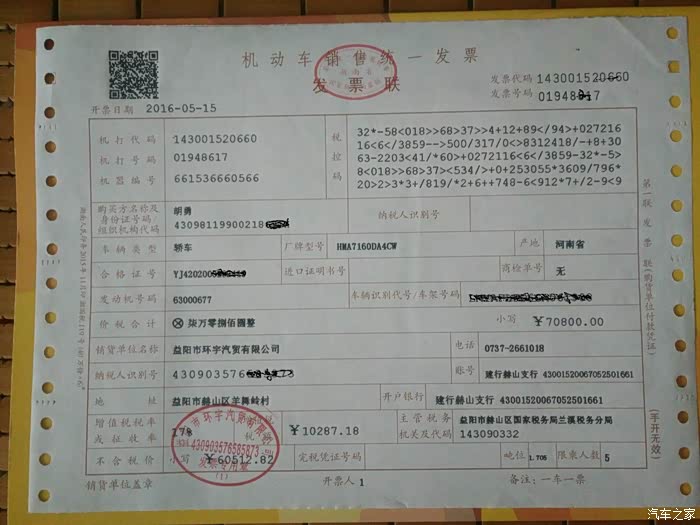 机动车销售统一发票
发票联
发票代码 143001520660
发票号码 01948617
开票日期 2016-05-15
机打代码 143001520660
机打号码 01948617
机器编号 661536660566
税控码
32*-58<018>>68>37>>4+12+89</94>+027216
16<6</3859-->500/317/0<>8312418/-+8+30
63-2203<41/*60>+0272116<6</3859-32*-5>
8<018>>68>37><534/>+0+253055*3609/796*
20>2>3*3+/819/*2+6++748-6<912*7+/2-9<9
购买方名称及身份证号码/组织机构代码 胡勇
43098119900218
纳税人识别号
车辆类型 轿车 厂牌型号 HMA7160DA4CW 产地 河南省
合格证号 YJ4202005 进口证明书号 商检单号 无
发动机号码 63000677 车辆识别代号/车架号码
价税合计 ⊗柒万零捌佰圆整 小写 ¥70800.00
销货单位名称 益阳市环宇汽贸有限公司 电话 0737-2661018
纳税人识别号 430903576 账号 建行赫山支行 43001520067052501661
地址 益阳市赫山区羊舞岭村 开户银行 建行赫山支行 43001520067052501661
增值税税率或征收率 17% 税 ¥10287.18 主管税务机关及代码 益阳市赫山区国家税务局兰溪税务分局
143090332
不含税价 小写 ¥60512.82 完税凭证号码 吨位 1.705 限乘人数 5
销货单位盖章 开票人 1 备注：一车一票
第一联 发票联(购货单位付款凭证)
(手开无效)
市环宇汽贸有限
430903576585873
发票专用章
(1)
汽车之家